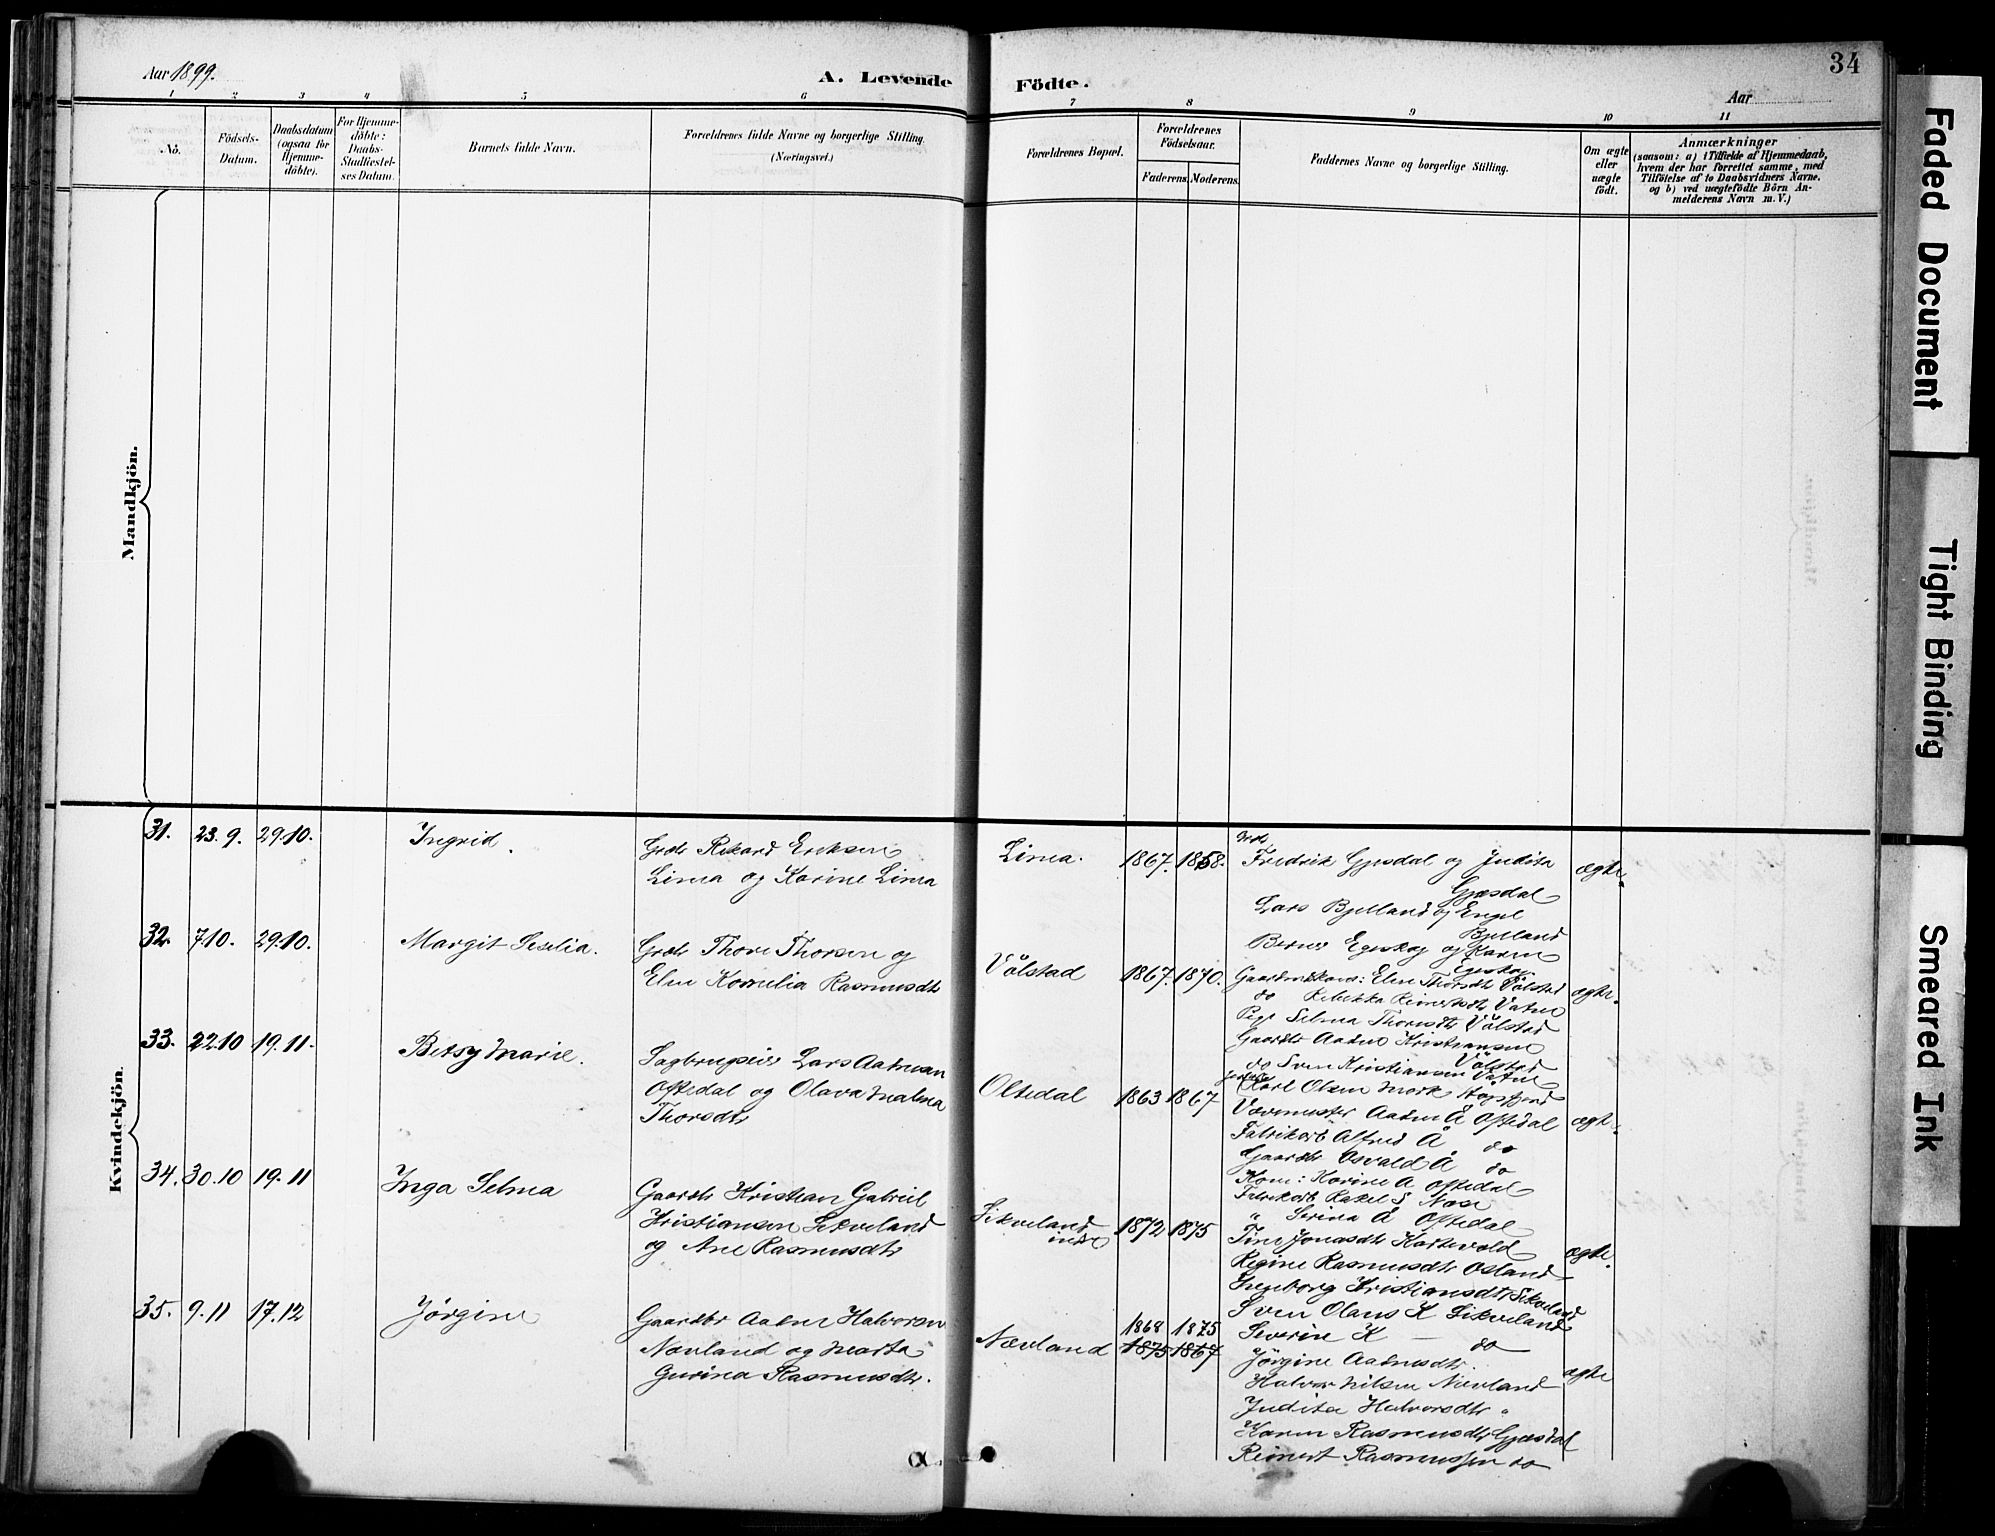 34
Aar 1899.
A. Levende Födte.
Aar
1 2 3 4 5 6 7 8 9 10 11
No.
Födsels-Datum.
Daabsdatum (ogsaa for Hjemme-döbte).
For Hjemme-döbte: Daabs-Stadfæstel-ses Datum.
Barnets fulde Navn.
Forældrenes fulde Navne og borgerlige Stilling. (Næringsvei.)
Forældrenes Bopæl.
Forældrenes Födselsaar.
Faderens. Moderens.
Faddernes Navne og borgerlige Stilling.
Om ægte eller uægte födt.
Anmærkninger
(saasom: a) i Tilfælde af Hjemmedaab, hvem der har forrettet samme, med Tilföielse af to Daabsvidners Navne. og b) ved uægtefödte Börn An-melderens Navn m. V.)
Mandkjön.
Kvindekjön.
31. 23.9. 29.10. Ingrid.
Grdr Rikard Eriksen
Lima og Karine Lima
Lima. 1867. 1858.
Grdr
Fredrik Gjesdal og Judita
Gjesdal
Lars Bjelland og Engel
Bjelland
Berner Egeskog og Karen
Egeskog
ægte.
32. 7.10. 29.10. Margit Seselia.
Grdr Thore Thorsen og
Elen Kornelia Rasmusdtr
Völstad 1867. 1870.
Gaardmskone: Elen Thorsdtr Völstad
do Rebekka Reinertsdtr Vatne
Pige Selma Thorsdtr Völstad
Gaardbr Aadne Kristiansen
Völstad
do Sven Kristiansen Vatne
ægte.
33. 22.10 19.11. Betsy Marie.
Sagbrugseier Lars Aadnesen
Oftedal og Olava Malena
Thorsdtr
Oltedal 1863 1867
Karl Olsen Mork Høgsfjord
Vævemester Aadne Å Oftedal
Fabrikarb Alfred Å do
Gaardbr Osvald Å do
Kone: Karine A Oftedal
Fabrikarb Rakel S Næse
" Serina Å Oftedal
ægte.
34. 30.10 19.11 Inga Selma
Gaardbr Kristian Gabriel
Kristiansen Sikveland
og Ane Rasmusdtr
Sikveland
indre
1872 1875
Tine Jonasdtr Kartevold
Regine Rasmusdtr Osland
Ingeborg Kristiansdtr Sikveland
Sven Olaus K Sikveland
Severin K — do
ægte.
35. 9.11 17.12 Jørgine
Gaardbr Aadne Halvorsen
Nævland og Marta
Gurina Rasmusdtr.
Nævland 1868 1875
1875 1867
Jørgine Aadnesdtr.
Halvor Nilsen Nævland
Judita Halvorsdtr "
Karen Rasmusdtr Gjesdal
Reinert Rasmussen do
ægte
α.
Faded Document
Tight Binding
Smeared Ink